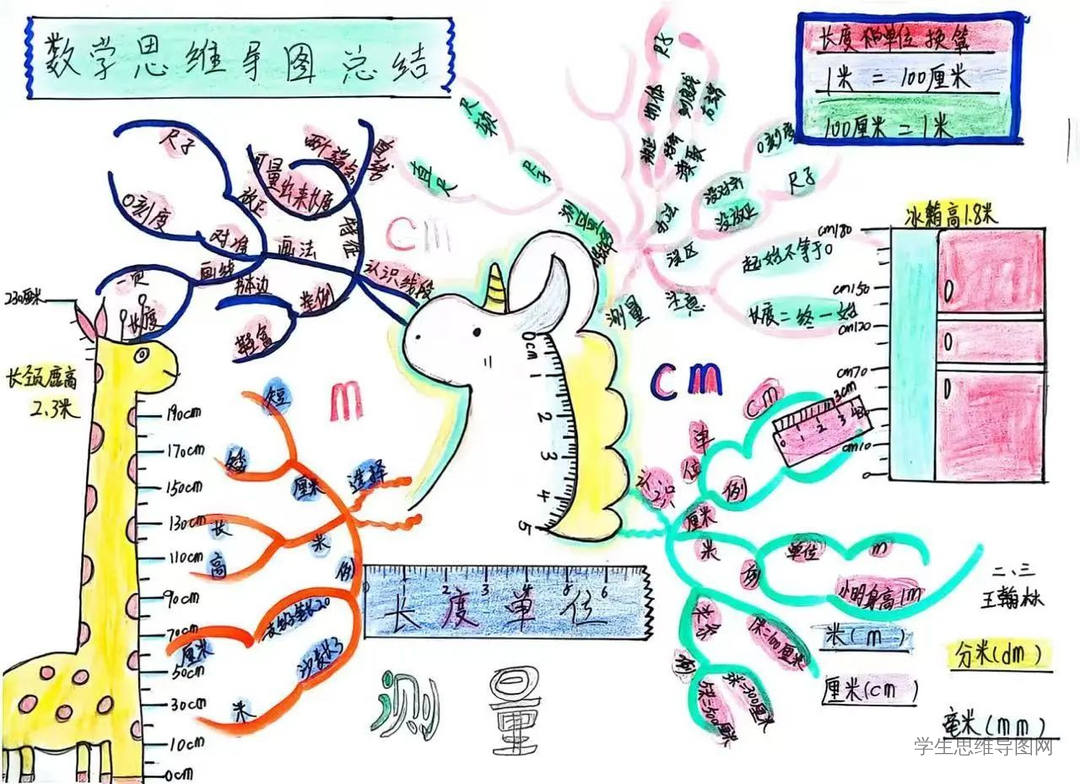 数学思维导图总结
长度单位换算
1米 = 100厘米
100厘米 = 1米
尺子
0刻度
放正
对准
画线
画法
一页
长度
特征
认识线段
cm
直尺
尺子
测量
尺子
0刻度
没对齐
没放正
尺子
误区
注意
起始不等于0
长度=终-始
测量
冰箱高1.8米
cm180
cm150
cm120
cm70
cm10
230厘米
长颈鹿高
2.3米
190cm
170cm
150cm
130cm
110cm
90cm
70cm
50cm
30cm
10cm
0cm
m
cm
0cm
1
2
3
4
5
短
矮
厘米
选择
长
高
米
例
厘米
米
0 1 2 3 4 5 6
长度单位
测量
认识
单位
cm
例
0 1 2 3
3cm
厘米
米
单位
m
例
小明身高1m
米(m)
分米(dm)
厘米(cm)
毫米(mm)
二、三
学生思维导图网